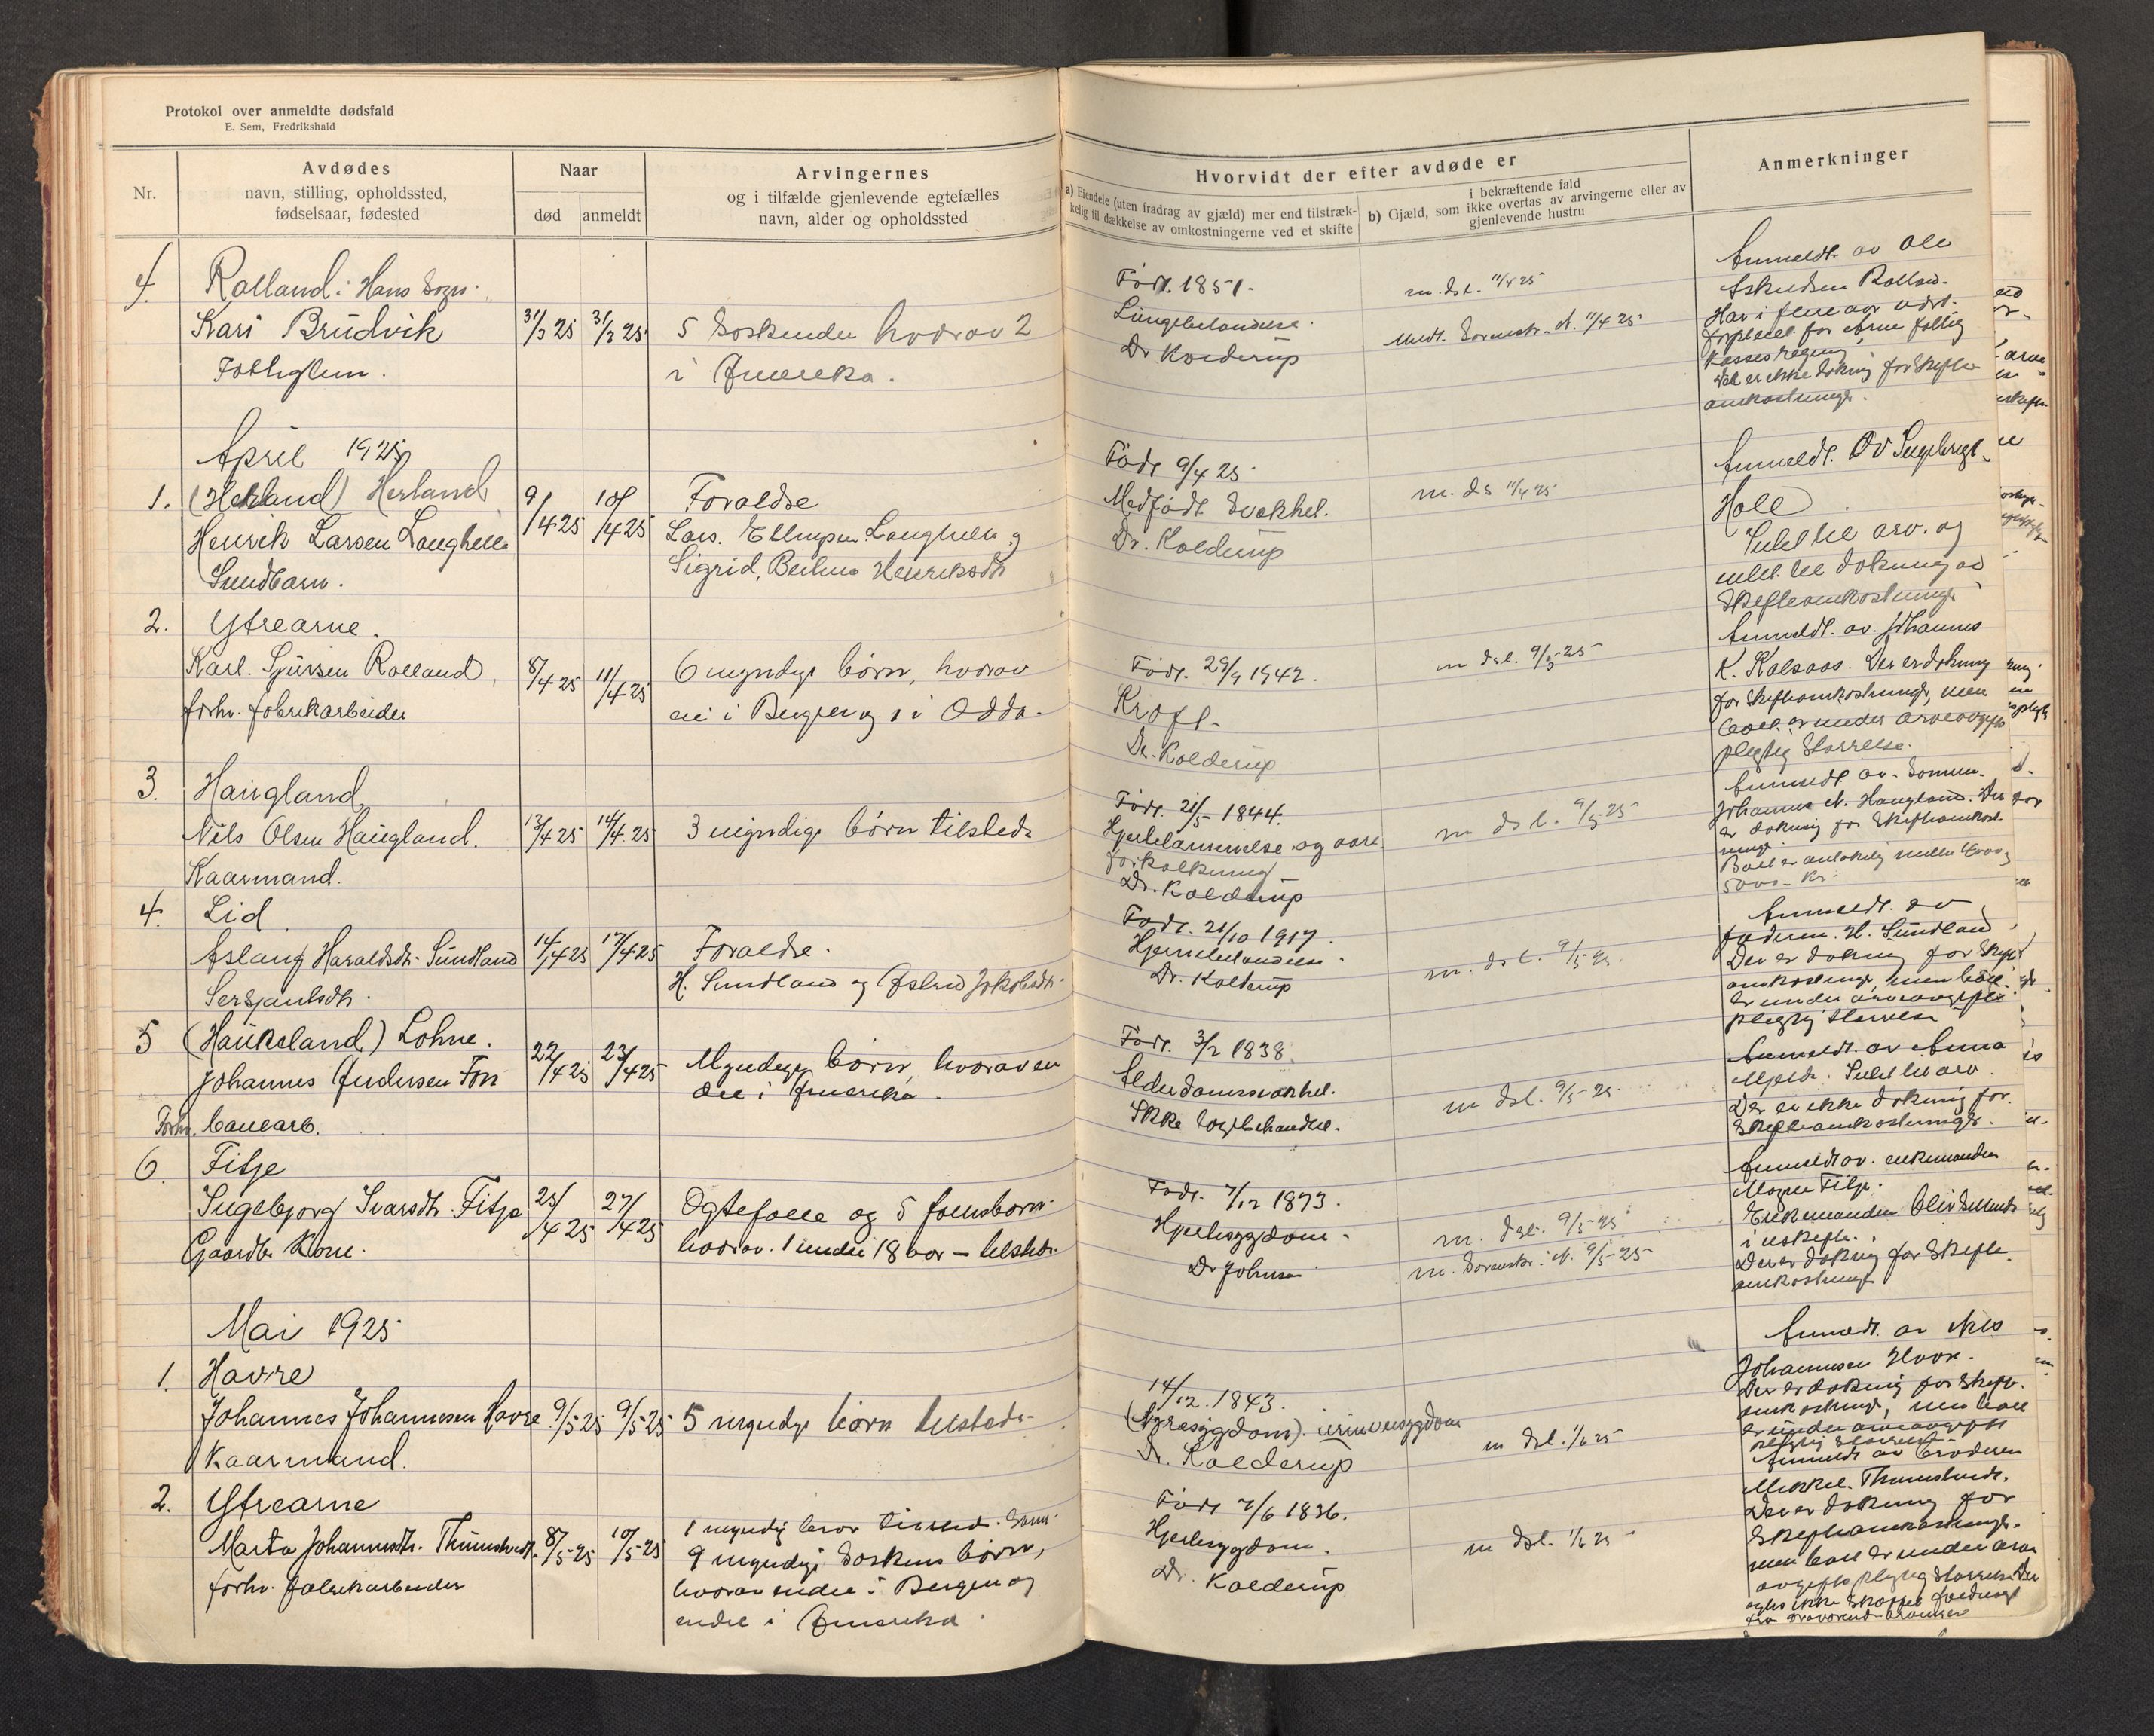 Protokol over anmeldte dødsfald
E. Sem, Fredrikshald
Nr.
Avdødes
navn, stilling, opholdssted,
fødselsaar, fødested
Naar
død
anmeldt
Arvingernes
og i tilfælde gjenlevende egtefælles
navn, alder og opholdssted
Hvorvidt der efter avdøde er
a) Eiendele (uten fradrag av gjæld) mer end tilstræk-
kelig til dækkelse av omkostningerne ved et skifte
i bekræftende fald
b) Gjæld, som ikke overtas av arvingerne eller av
gjenlevende hustru
Anmerkninger
4. Rolland i Haus Sogn.
Kari Brudvik 31/3 25 31/3 25 5 Søskende hvorav 2
Fattiglem. i Amerika.
Født. 1851.
Lungebetændelse.
Dr. Kolderup
m. dsl. 11/4 25
Meldt. Sorenskr. N. 11/4 25
Anmeldt av Ole
Askildsen Rolland.
Har i flere aar vært
forpleiet for Arne fattig
kasses regning
Det er ikke dækning for Skifte
omkostninger.
April 1925
1. (Herland) Herland 9/4 25 10/4 25 Foraldre
Henrik Larsen Langhelle Lars. Langhelle og
Smaabarn. Sigrid, Henriksdtr
Født 9/4 25
Medfødt Svakhet.
Dr. Kolderup
m. ds 11/4 25
Anmeldt. av Ingebrigt
Holl
Intet til arv. og
intet til dækning av
Skifteomkostninger
2. Ytrearne.
Karl. Sjursen Rolland, 8/4 25 11/4 25 6 myndige børn, hvorav
forhv. fabrikarbeider en i Bergen og 1 i Odda.
Født. 29/9 1942.
Kræft.
Dr. Kolderup
m dsl. 9/5 25
Anmeldt. av. Johannes
K. Kalsaas. Der er dækning
for Skifteomkostninger, men
boet er under arveavgifts
pligtig Størrelse.
3. Haugland
Nils Olsen Haugland. 13/4 25 14/4 25 3 myndige børn tilsteds
Kaarmand.
Født. 21/5 1844.
Hjertelammelse og aare
forkalkning
Dr. Kolderup
m dsl. 9/5 25
Anmeldt av. Sønnen.
Johannes N. Haugland. Der
er dækning for Skifteomkost
ninger.
Boet er antakelig mellem 4000 og
5000 - Kr.
4. Lid
Aslaug Haraldsdtr. Sundland 14/4 25 17/4 25 Foraldre.
Sersjantsdtr. H. Sundland og Jakobsdtr.
Født. 21/10 1917.
Hjernebetændelse.
Dr. Kolderup
m. dsl. 9/5 25.
Anmeldt. av
faderen. H. Sundland
Der er dækning for Skifte
omkostninger, men boet
er under arveavgifts
pligtig Størrelse
5 (Haukeland) Lohne. 22/4 25 23/4 25 Myndige børn, hvorav en
Johannes Andersen Fon del i Amerika.
Forhv. banearb.
Født. 3/2 1838.
Alderdomssvakhet.
Ikke lægebehandlet.
m dsl. 9/5 25
Anmeldt. av Anna
Mjelde. Intet til arv.
Der er ikke dækning for
Skifteomkostninger.
6. Fitje
Ingebjørg Ivarsdtr. Fitje 25/4 25 27/4 25 Ægtefælle og 5 fællesbørn
Gaardbr. Kone. hvorav. 1 under 18 aar - tilsteds.
Født. 7/12 1873.
Hjertesygdom.
Dr Johnsen
m. dsl. 9/5 25
m. Sorenskr. N. 9/5 25
Anmeldt av. enkemanden
Mons Fitje.
Enkemanden
i uskifte.
Der er dækning for Skifte
omkostninger
Mai 1925
1. Havre
Johannes Johannesen Havre 9/5 25 9/5 25 5 myndige børn tilsteds
Kaarmand.
14/12. 1843.
(Nyresygdom).
Dr. Kolderup
m dsl. 1/6 25
Anmeldt. av Nils
Johannesen Havre.
Der er dækning for Skifte
omkostninger, men boet
er under arveavgifts
pligtig Størrelse
2. Ytrearne
Marta Johannesdtr. 8/5 25 10/5 25 1 myndig bror tilsteds. Samt
forhv. fabrikarbeider 9 myndige Søskens børn,
hvorav endel i Bergen og
endel i Amerika.
Født 7/6 1836.
Hjertesygdom.
Dr. Kolderup
m dsl. 1/6 25
Anmeldt av broderen
Mikkel.
Der er dækning for
Skifteomkostninger.
men boet er under arve
avgifts pligtig Størrelse. Der